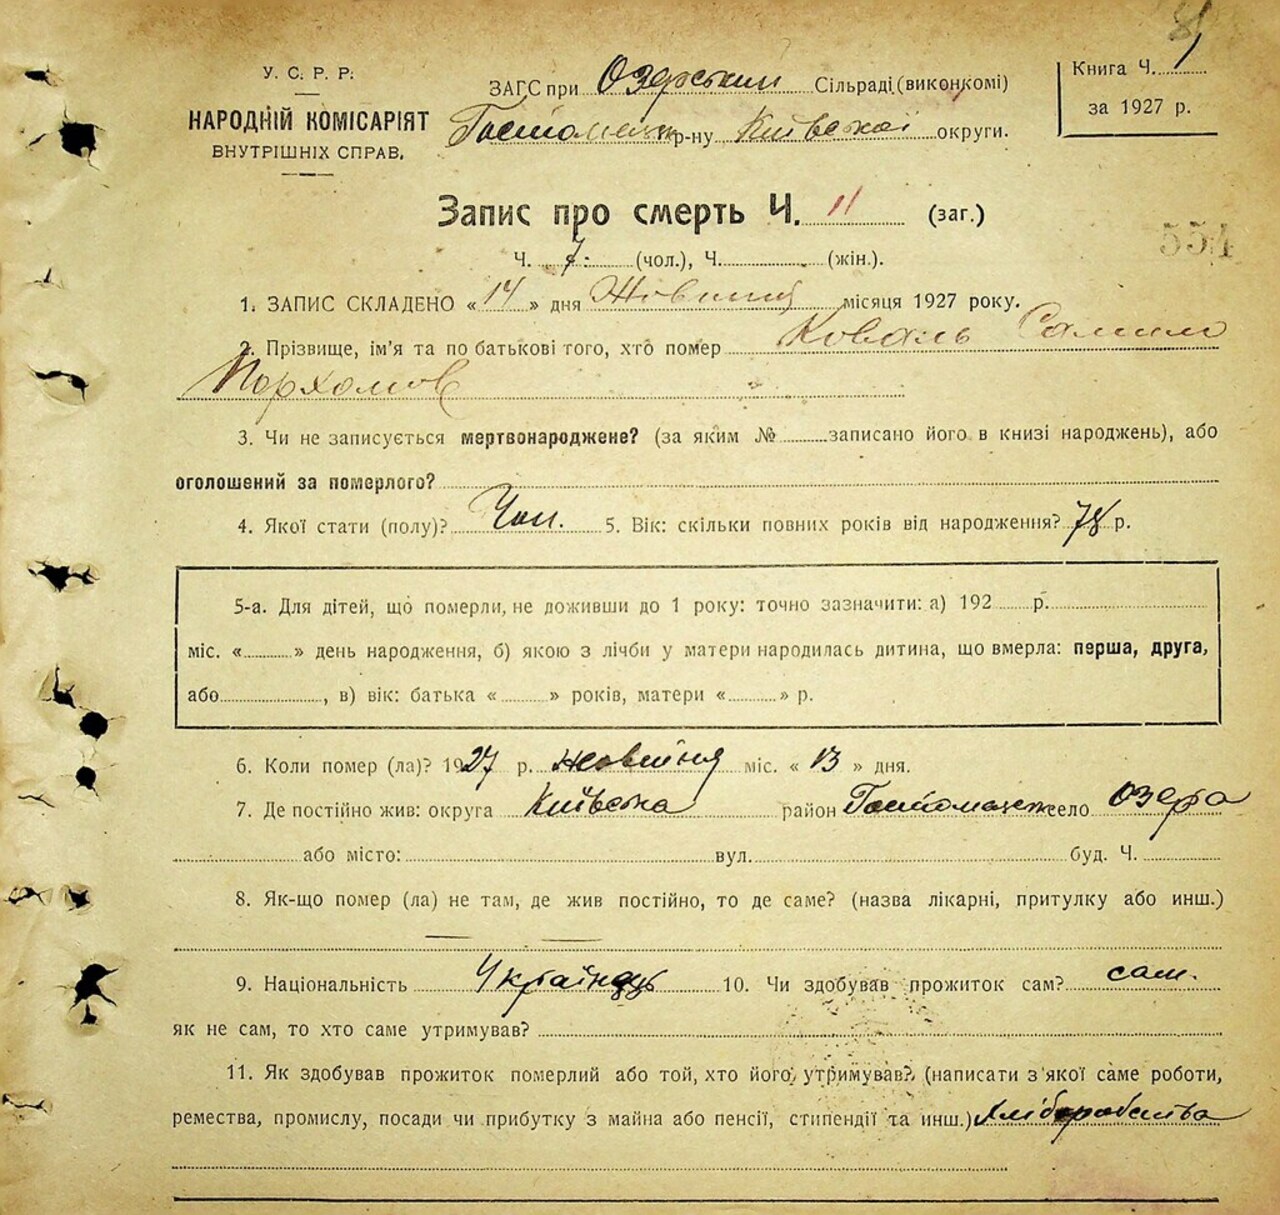 У. С. Р. Р.
НАРОДНІЙ КОМІСАРІЯТ
ВНУТРІШНІХ СПРАВ.
ЗАГС при Озерський Сільраді (виконкомі)
Гостомельск р-ну Київської округи.
Книга Ч. 1
за 1927 р.
Запис про смерть Ч. 11 (заг.)
554
Ч. 7: (чол.), Ч. (жін.).
1. ЗАПИС СКЛАДЕНО « 14 » дня Жовтня місяця 1927 року.
2. Прізвище, ім'я та по батькові того, хто помер Коваль Самило
Пархомов
3. Чи не записується мертвонароджене? (за яким № записано його в книзі народжень), або
оголошений за померлого?
4. Якої стати (полу)? Чол. 5. Вік: скільки повних років від народження? 78 р.
5-а. Для дітей, що померли, не доживши до 1 року: точно зазначити: а) 192 р.
міс. « » день народження, б) якою з лічби у матери народилась дитина, що вмерла: перша, друга,
або , в) вік: батька « » років, матери « » р.
6. Коли помер (ла)? 1927 р. жовтня міс. « 13 » дня.
7. Де постійно жив: округа Київська район Гостомельск село Озера
або місто: вул. буд. Ч.
8. Як-що помер (ла) не там, де жив постійно, то де саме? (назва лікарні, притулку або инш.)
9. Національність Українець 10. Чи здобував прожиток сам? сам.
як не сам, то хто саме утримував?
11. Як здобував прожиток померлий або той, хто його утримував? (написати з якої саме роботи,
ремества, промислу, посади чи прибутку з майна або пенсії, стипендії та инш.) Хліборобства